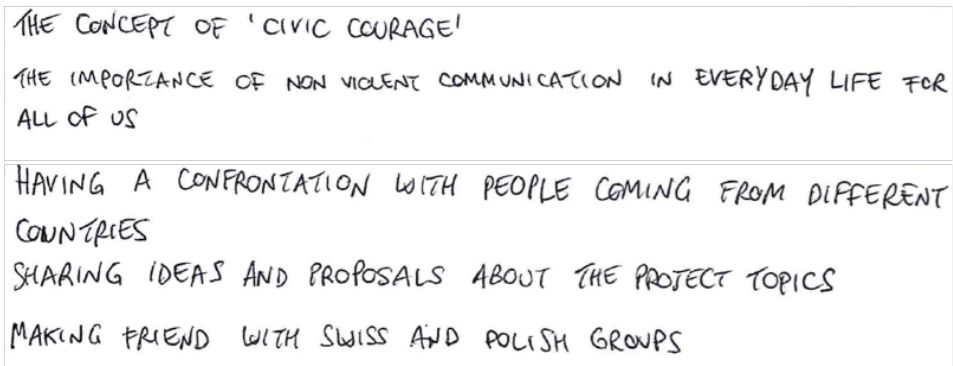 THE CONCEPT OF 'CIVIC COURAGE'
THE IMPORTANCE OF NON VIOLENT COMMUNICATION IN EVERYDAY LIFE FOR
ALL OF US
HAVING A CONFRONTATION WITH PEOPLE COMING FROM DIFFERENT
COUNTRIES
SHARING IDEAS AND PROPOSALS ABOUT THE PROJECT TOPICS
MAKING FRIEND WITH SWISS AND POLISH GROUPS